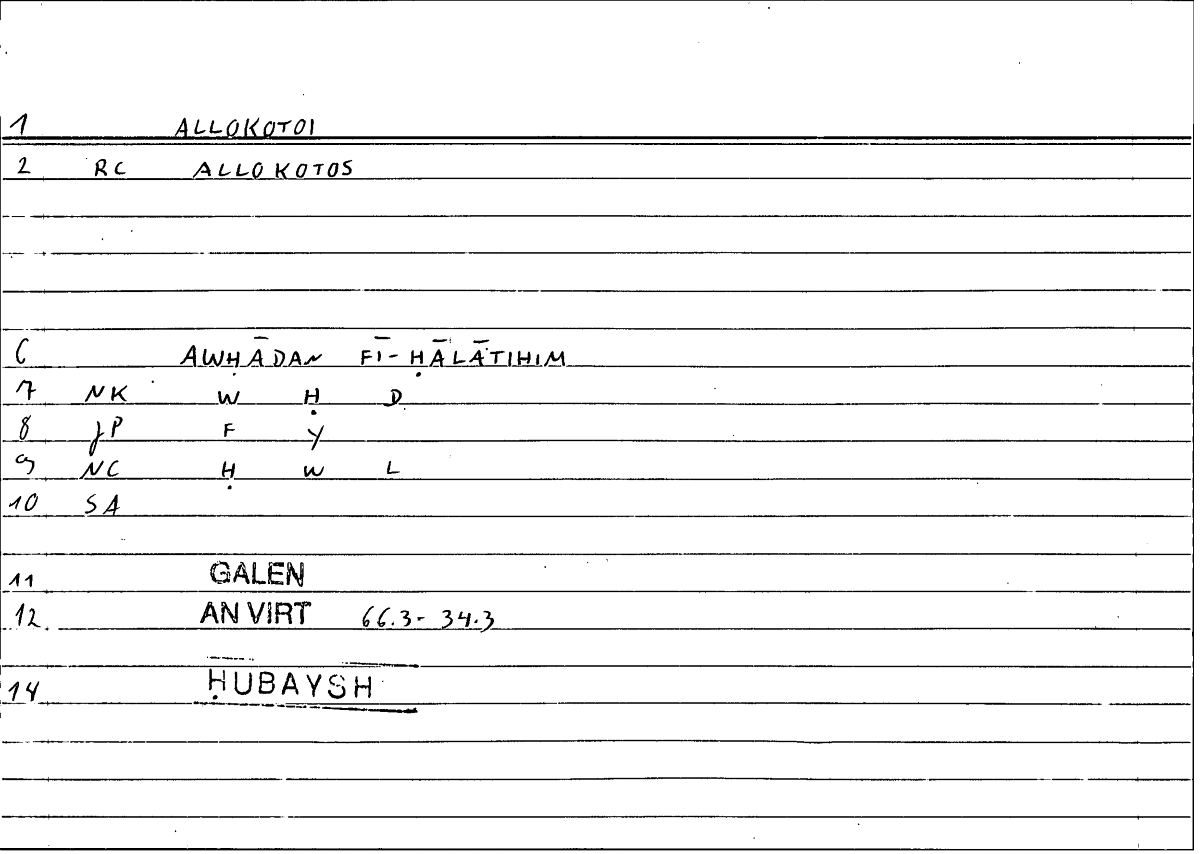 1 ALLOKOTOI
2 RC ALLOKOTOS
6 AWḤĀDAN FĪ-ḤĀLĀTIHIM
7 NK W Ḥ D
8 JP F Y
9 NC Ḥ W L
10 SA
11 GALEN
12 AN VIRT 66.3- 34.3
14 ḤUBAYSH